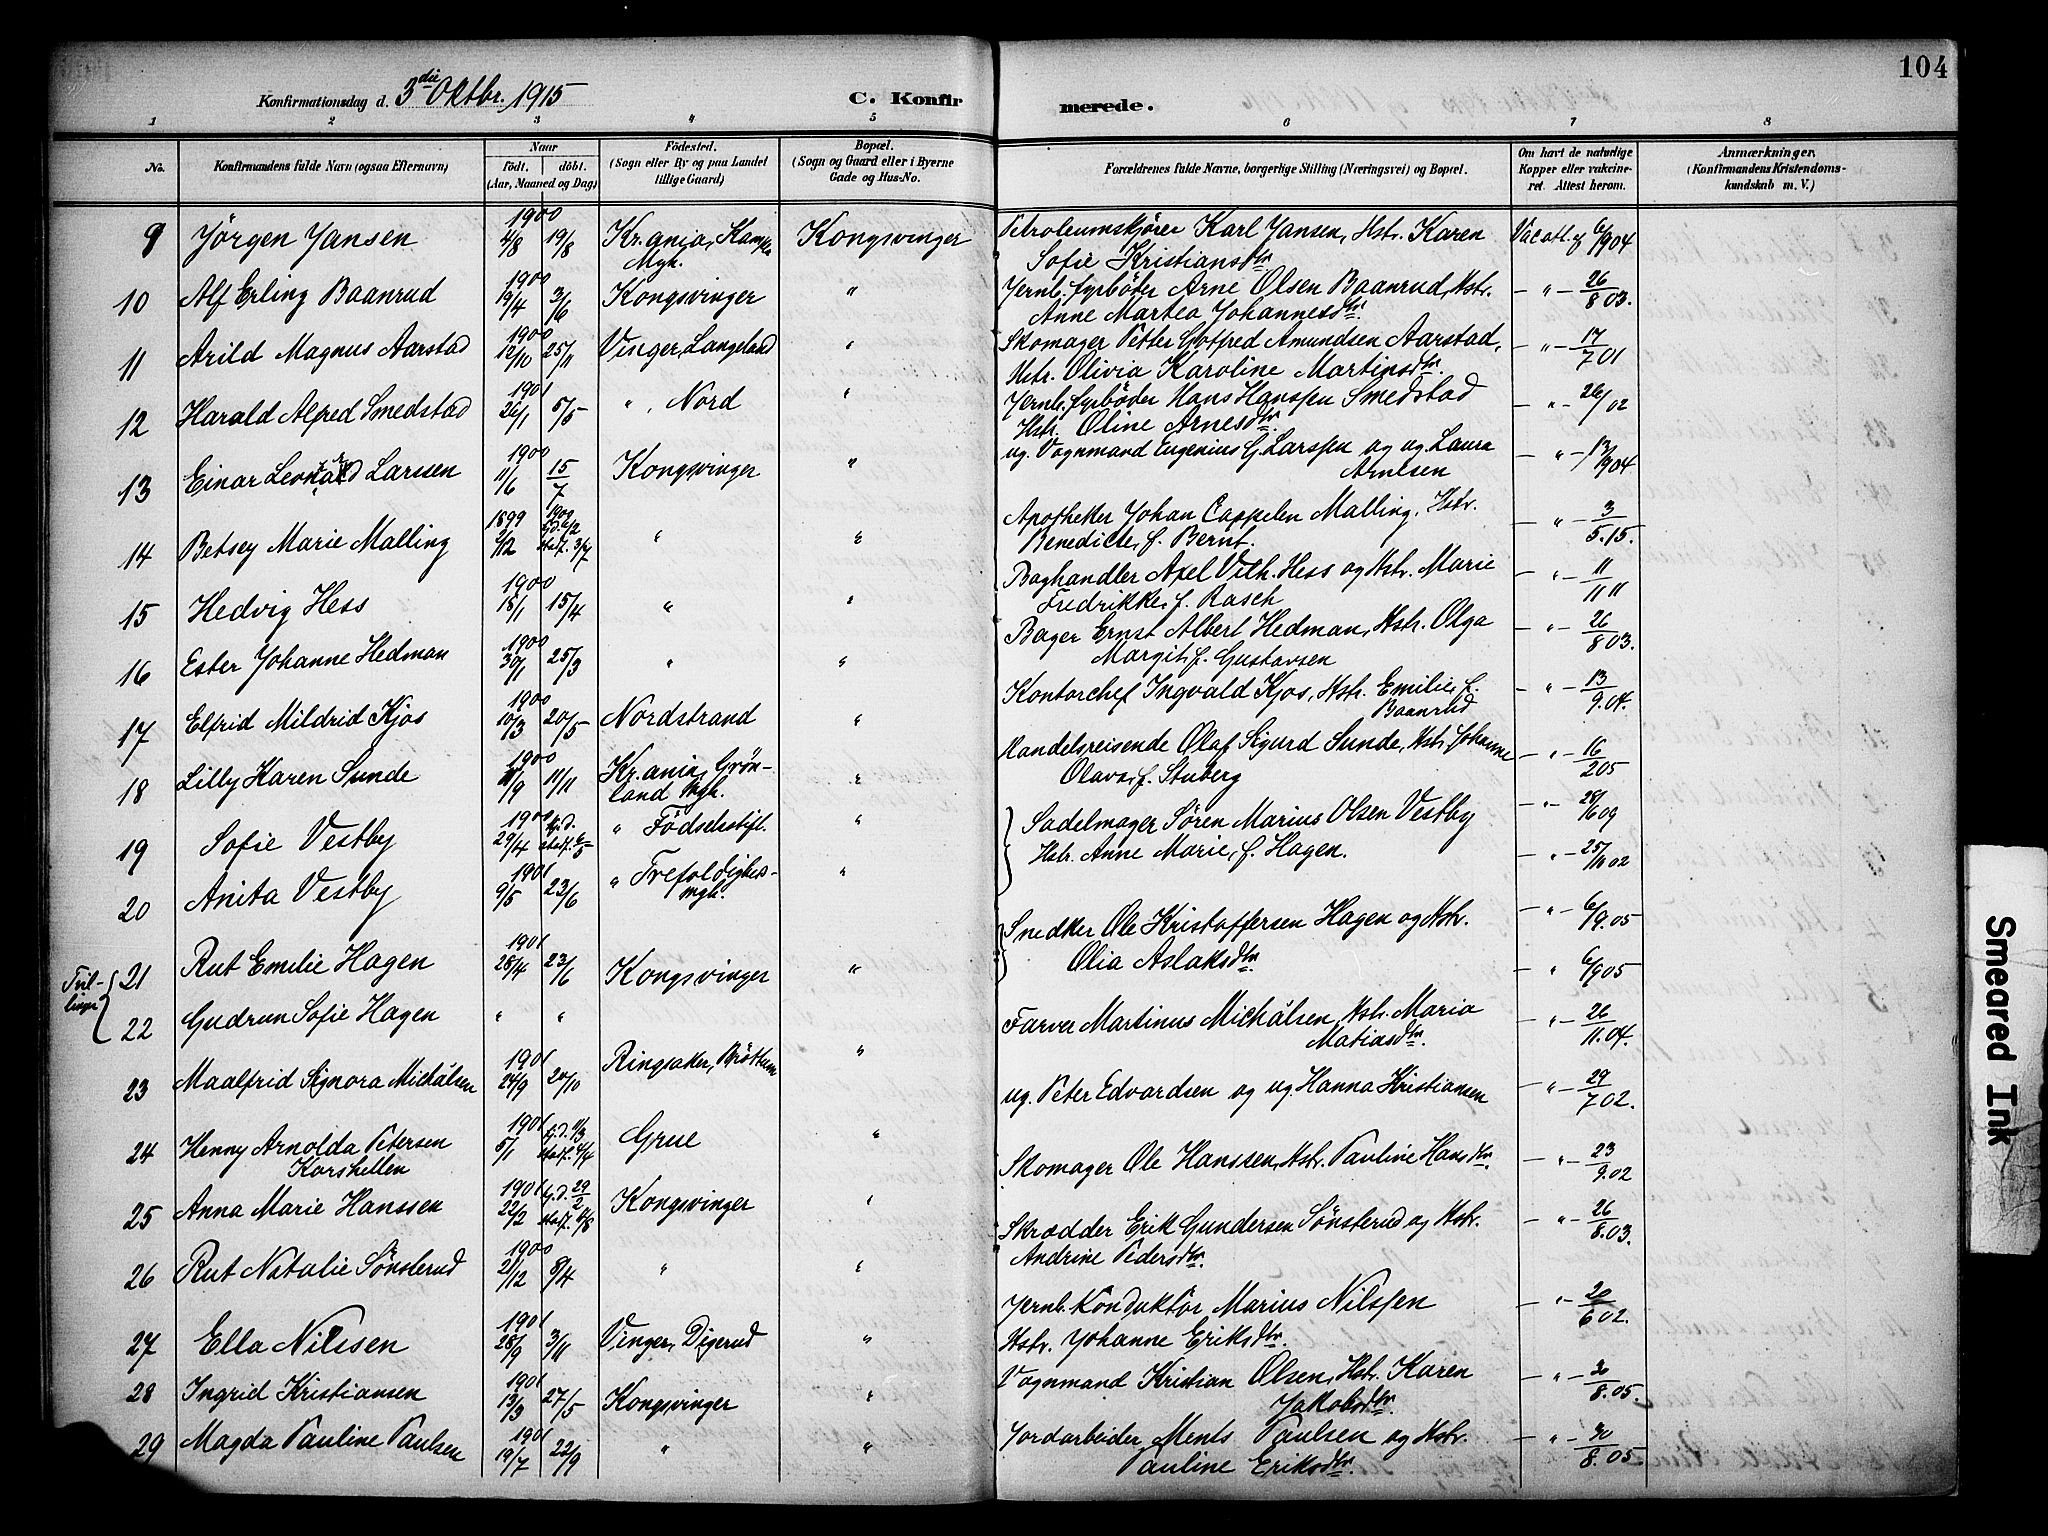 104
Konfirmationsdag d. 3die Oktbr. 1915
C. Konfirmerede.
1 2 3 4 5 6 7 8
No. Konfirmandens fulde Navn (ogsaa Efternavn) Naar født, døbt. (Aar, Maaned og Dag) Fødested. (Sogn eller By og paa Landet tillige Gaard) Bopæl. (Sogn og Gaard eller i Byerne Gade og Hus-No. Forældrenes fulde Navne, borgerlige Stilling (Næringsvei) og Bopæl. Om havt de naturlige Kopper eller vakcineret. Attest herom. Anmærkninger. (Konfirmandens Kristendomskundskab m. V.)
9 Jörgen Jansen 1900 4/8 19/8 Kr.ania, Mgh. Kongsvinger Petroleumskjörer Karl Jansen, Hstr. Karen
Sofie Kristiansdtr. Vac att. af 6/9 04
10 Alf Erling Baanrud 1900 19/4 3/6 Kongsvinger " Jernb.fyrböter Arne Olsen Baanrud, Hstr.
Anne Martea Johannesdtr. - " - 26/8 03.
11 Arild Magnus Aarstad 1900 12/10 25/11 Vinger, Langeland " Skomager Petter Gotfred Amundsen Aarstad,
Hstr. Olivia Karoline Martinsdtr. - " - 17/7 01
12 Harald Alfred Smedstad 1901 26/1 5/5 " , Nord " Jernb.fyrböder Hans Hanssen Smedstad
Hstr. Oline Arnesdtr. - " - 26/02
13 Einar Leonard Larssen 1900 11/6 15/7 Kongsvinger " ug. Vognmand Eugenius G. Larssen og ug. Laura
Arnesen - " - 13/9 04.
14 Betsey Marie Malling 1899 2/12 1900 Stadf. 3/7 " " Apotheker Johan Cappelen Malling, Hstr.
Benedicte, f. Bernt. - " - 3/5.15.
15 Hedvig Hess 1900 18/1 15/4 " " Boghandler Axel Vilh. Hess og Hstr. Marie
Fredrikke, f. Rasch - " - 11/11 11
16 Ester Johanne Hedman 1900 30/1 25/3 " " Bager Ernst Albert Hedman, Hstr. Olga
Margit, f. Gustavsen - " - 26/8 03.
17 Elfrid Mildrid Kjos 1900 10/3 20/5 Nordstrand " Kontorchef Ingvald Kjos, Hstr. Emilie, f.
Baanrud - " - 13/9.04.
18 Lilly Karen Sunde 1900 /9 11/11 Kr.ania, Grön-
land Mgh. " Handelsreisende Olaf Sigurd Sunde, Hstr. Johanne
Olava, f. Stuberg - " - 16/2 05
19 Sofie Vestby 1900 29/4 hj.d. stadf. " Födselsstift. " Sadelmager Sören Marius Olsen Vestby
Hstr. Anne Marie, f. Hagen. - " - 28/6 09
20 Anita Vestby 1901 9/5 23/6 " Trefoldigheds-
mgh. " - " - 25/11 02
Tvil-
linger
21 Rut Emilie Hagen 1901 28/4 23/6 Kongsvinger " Snedker Ole Kristoffersen Hagen og Hstr.
Olia Aslaksdtr. - " - 6/9.05
22 Gudrun Sofie Hagen " " - " 6/9 05
23 Maalfrid Signora Michälsen 1901 24/9 20/10 Ringsaker, Bröttum " Farver Martinus Michälsen, Hstr. Maria
Matiasdtr. - " - 26/11.04.
24 Henny Arnolda Petersen
Korshellen 1901 5/1 hj.d. 1/3 stadf. Grue " ug. Peter Edvardsen og ug. Hanna Kristiansen - " - 29/7 02.
25 Anna Marie Hanssen 1901 22/2 hj.d. stadf. Kongsvinger " Skomager Ole Hanssen, Hstr. Pauline Hansdtr. - " - 23/9.02
26 Rut Natalie Sönsterud 1900 21/12 8/4 " " Skrædder Erik Gundersen Sönsterud og Hstr.
Andrine Pedersdtr. - " - 26/8.03.
27 Ella Nilssen 1901 28/9 3/11 Vinger, Digerud " Jernb. Konduktör Marius Nilssen
Hstr. Johanne Eriksdtr. - " - 20/6 02.
28 Ingrid Kristiansen 1901 13/3 27/5 Kongsvinger " Vognmand Kristian Olsen, Hstr. Karen
Jakobsdtr. - " - 30/8.05.
29 Magda Pauline Paulsen 1901 19/7 22/9 " " Jordarbeider Ments Paulsen og Hstr.
Pauline Eriksdtr. - " - 30/8.05
Smeared Ink